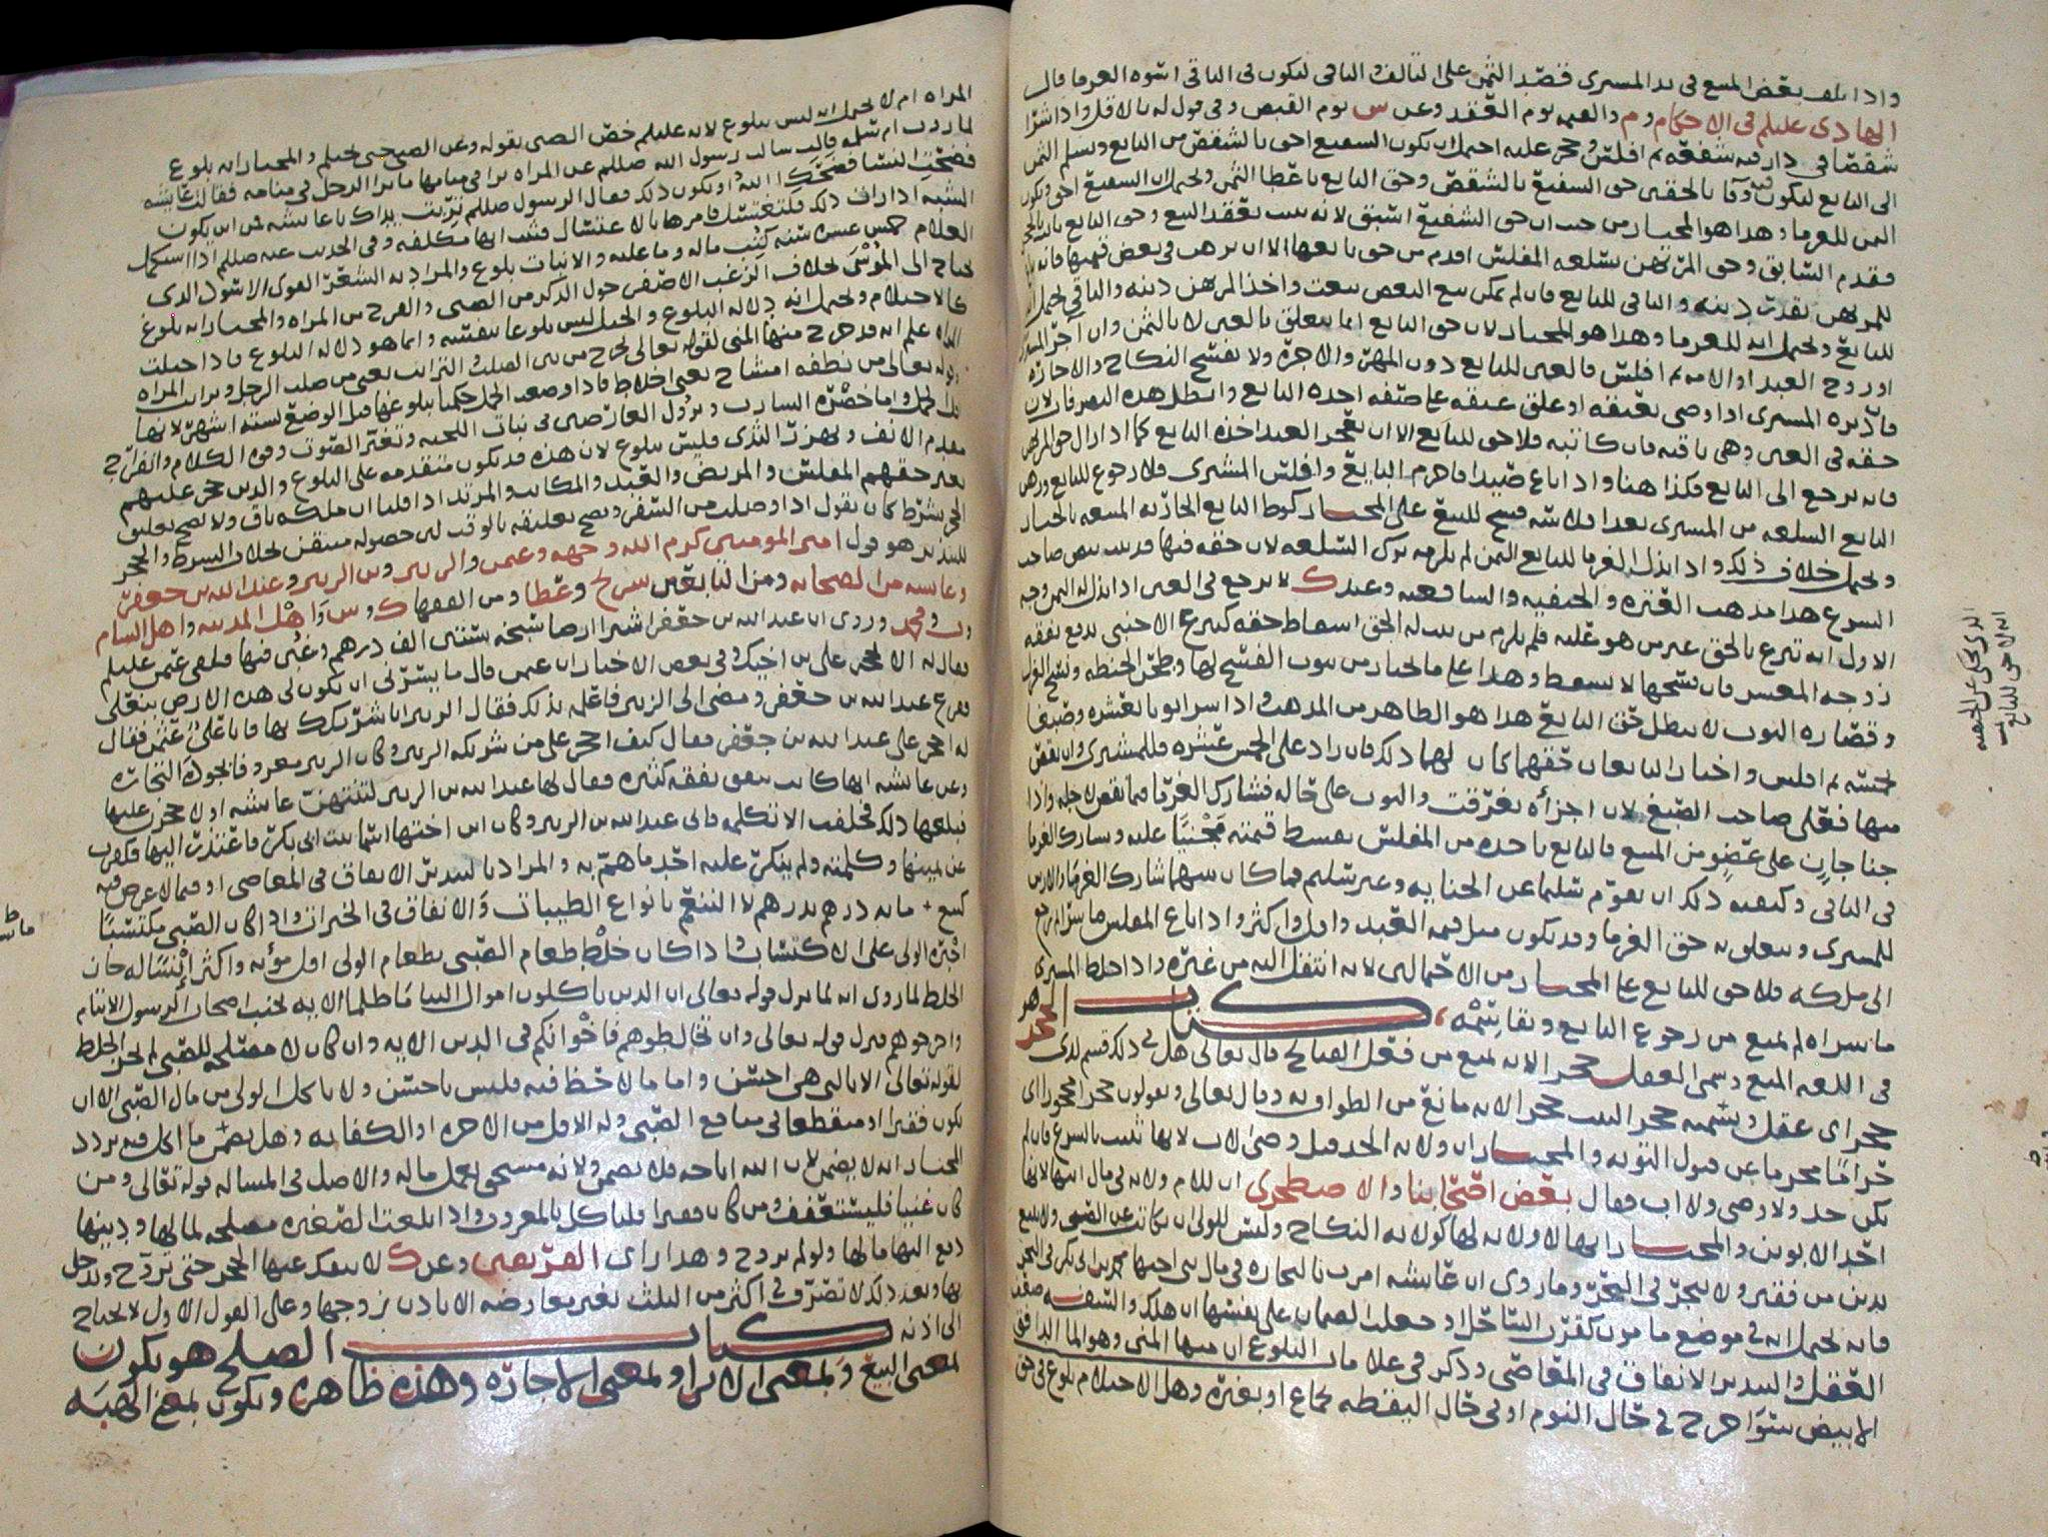 واذا تلف بعض المبيع في يد المشتري قسّط الثمن على التالف والباقي ليكون في الباقي اسوة الغرما قال
الهادي عليلم في الاحكام وم والقيمه يوم العقد وعن س يوم القبض وفي قول له بالاقل واذا اشترا
شقصًا في دار فيه شفعة ثم افلس وحجر عليه احتمل ان يكون الشفيع احق بالشقص من البايع ويسلم الثمن
الى البايع ليكون فيه وفا بالحقين حق الشفيع بالشقص وحق البايع باعطا الثمن ويحتمل ان الشفيع احق ويكون
الثمن للغرما وهذا هو المختار من حيث ان حق الشفيع اسبق لانه يثبت بعقد البيع وحق البايع بالحجر
فقدم السابق وحق المرتهن بسلعه المفلس اقدم من حق بايعها الا ان يرهن في بعض قيمتها فانه يباع
للمرتهن بقدر دينه والباقي للبايع فان لم يمكن بيع البعض بيعت واخذ المرتهن دينه والباقي يحتمل انه
للبايع ويحتمل انه للغرما وهذا هو المختار لان حق البايع انما يتعلق بالعين لا بالثمن وان اجر المشتري
او زوج العبد او الامه ثم افلس فالعين للبايع دون المهر والاجره ولا يفسخ النكاح والاجاره
فان دبره المشتري او اوصى بعتقه او علق عتقه على صفه اخذه البايع وابطل هذه التصرفات لان
حقه في العين وهي باقيه فان كاتبه فلا حق للبايع الا ان يعجز العبد اخذه البايع كما اذا زال حق المرتهن
فانه يرجع الى البايع فكذا هنا واذا باع صيدا فاحرم البايع وافلس المشتري فلا رجوع للبايع
البايع السلعه من المشتري بعد افلاسه فسخ للبيع على المختار كوطء البايع الجاريه المبيعه بالخيار
ويحتمل خلاف ذلك واذا بذل الغرما للبايع الثمن لم يلزمه ترك السلعه لان حقه فيها قد ثبت بنص صاحب
الشرع هذا مذهب العتره والحنفيه والشافعيه وعند ك لا يرجع في العين اذا بذل له الثمن وجه
الاول انه تبرع بالحق عن من هو عليه فلم يلزم من ثبت له الحق اسقاط حقه كتبرع الاجنبي بدفع نفقه
زوجه المعسر فان فسخها لا يسقط وهذا على ما يختار من ثبوت الفسخ لها وطحن الحنطه ونسج الغزل
وقصاره الثوب لا يبطل حق البايع هذا هو الظاهر من المذهب واذا اشترا ثوبا بعشره وصبغا
بخمسه ثم افلس واختار البايعان حقهما كان لهما ذلك فان زاد على الخمس عشره فللمشتري وان نقص
منها فعلى صاحب الصبغ لان اجزاه تفرقت والثوب على حاله فشارك الغرما فيما نقص لاجله واذا
جنا جان على عضو من المبيع فالبايع ياخذه من المفلس بقسط قيمته مجنيًا عليه ويشارك الغرما
في الباقي وكيفية ذلك ان يقوم سليما عن الجنايه وغير سليم فما كان بينهما شارك الغرما والارش
للمشتري ويتعلق به حق الغرما وقد يكون مثل قيمه العبد واقل واكثر واذا باع المفلس ما شراه ثم رجع
الى ملكه فلا حق للبايع على المختار من الاحتمالين لانه انتقل اليه من غيره واذا خلط المشتري
ما شراه لم يمنع من رجوع البايع وتقاسمه، كتاب الحجر هو
في اللغه المنع وسمي العقل حجر الانه يمنع من فعل القبايح قال تعالى هل في ذلك قسم لذي
حجر اي عقل وتسميه حجر البيت حجر الانه مانع من الطواف به وقال تعالى ويقولون حجرا محجورا اي
حراما محرما عن قبول التوبه والمختار ان ولايه الجد قبل وصي الاب لانها تثبت بالشرع فان لم
يكن جد ولا وصي ولا اب فقال بعض اصحابنا والاصطخري ان للام ولايه في مال ابنها لانها
احد الابوين والمختار انها لا ولايه لها كولايه النكاح وليس للولي ان يكاتب عن الصبي ولا يبيع
بدين من فقير ولا يتجر في البحر وما روي ان عايشه امرت بالتجاره في مال بني اخيها محمد بن ابي بكر في البحر
فانه يحتمل انه في موضع مامون كقرب الساحل او جعلت الضمان على نفسها ان هلك والسفه ضعف
العقل والتبذير الانفاق في المعاصي وذكر في علامات البلوغ ان منها المني وهو الما الدافق
الابيض سوا خرج في حال النوم او في حال اليقظه بجماع او بغيره وهل الاحتلام بلوغ في حق
المراه ام لا يحتمل انه ليس ببلوغ لانه عليلم خص الصبي بقوله وعن الصبي حتى يحتلم والمختار انه بلوغ
لما روت ام سلمه قالت سالت رسول الله صللم عن المراه ترا في منامها ما يرا الرجل في منامه فقالت عايشه
فضحت النسا فضحك الله او يكون ذلك فقال الرسول صللم تربت يداك يا عايشه فمن اين يكون
الشبه اذا رات ذلك فلتغتسل فامرها بالاغتسال فثبت انها مكلفه وفي الحديث عنه صللم اذا استكمل
الغلام خمس عشره سنه كتب ماله وما عليه والانبات بلوغ والمراد به الشعر القوي الاسود الذي
يحتاج الى الموسى بخلاف الزغب الاصفر حول الذكر من الصبي والفرج من المراه والمختار انه بلوغ
كالاحتلام ويحتمل انه دلاله البلوغ والحبل ليس بلوغا بنفسه وانما هو دلاله البلوغ فاذا حبلت
المراه علم انه قد خرج منها المني لقوله تعالى يخرج من بين الصلب والترائب يعني من صلب الرجل وترائب المراه
وقوله تعالى من نطفه امشاج يعني اخلاط فاذا وضعت الحمل حكمنا ببلوغها قبل الوضع لسته اشهر لانها
اقل الحمل واما خضره الشارب ونزول العارضين في نبات اللحيه وتغير الصوت وقوه الكلام وانفراج
مقدم الانف ونهزت الثدي فليس ببلوغ لان هذه قد تكون متقدمه على البلوغ والذين حجر عليهم
لغير حقهم المفلس والمريض والعبد والمكاتب والمرتد اذا قلنا ان ملكه باق ولا يصح تعليق
الحجر بشرط كان يقول اذا وصلت من السفر ويصح تعليقه بالوقت لان حصوله متيقن بخلاف الشرط والحجر
للتبذير هو قول امير المومنين كرم الله وجهه وعثمن والزبير وبن الزبير وعبد الله بن جعفر
وعايشه من الصحابه ومن التابعين شريح وعطا ومن الفقها ك وس واهل المدينه واهل الشام
وف ومحمد وروي ان عبد الله بن جعفر اشترا ارضا سبخه بستين الف درهم وغبن فيها فلقي عثمن عليلم
فقال له الا تحجر على بن اخيك وفي بعض الاخبار ان عثمن قال ما يسرني ان تكون لي هذه الارض بنعلي
ففزع عبد الله بن جعفر ومضى الى الزبير فاعلمه بذلك فقال الزبير انا شريكك بها فاتا علي عثمن فقال
له احجر على عبد الله بن جعفر فقال كيف احجر على من شريكه الزبير وكان الزبير معروفا بجوده التجاره
وعن عايشه انها كانت تنفق نفقه كثيره فقال لها عبد الله بن الزبير لتنتهين عايشه او لاحجرن عليها
فبلغها ذلك فحلفت الا تكلمه فاتى عبد الله بن الزبير وكان ابن اختها اسما بنت ابي بكر فاعتذر اليها فكفرت
عن يمينها وكلمته ولم ينكر عليه احد ما هم به والمراد بالتبذير الانفاق في المعاصي او فيما لا غرض فيه
كبيع مايه درهم بدرهم لا التنعم بانواع الطيبات والانفاق في الخيرات واذا كان الصبي مكتسبًا
اجبره الولي على الاكتساب واذا كان خلط طعام الصبي بطعام الولي اقل مؤنه واكثر انسًا له جاز
الخلط لما روي انه لما نزل قوله تعالى ان الذين ياكلون اموال اليتاما ظلما الايه تجنب اصحاب الرسول الايتام
واحرجوهم فنزل قوله تعالى وان تخالطوهم فاخوانكم في الدين الايه وان كان لا مصلحه للصبي لم يجز الخلط
لقوله تعالى الا بالتي هي احسن واما ما لا حظ فيه فليس باحسن ولا ياكل الولي من مال الصبي الا ان
يكون فقيرا او منقطعا في منافع الصبي وله الاقل من الاجره او الكفايه وهل يضمن ما اكل فيه تردد
المختار انه لا يضمن لان الله اباحه فلا يضمن ولانه مستحق بعمل ماله والاصل في المساله قوله تعالى ومن
كان غنيا فليستعفف ومن كان فقيرا فلياكل بالمعروف واذا بلغت الصغيره مصلحه لمالها ودينها
دفع اليها مالها ولو لم تزوج وهذا راي الفريقين وعن ك لا ينفك عنها الحجر حتى تزوج ويدخل
بها وبعد ذلك لا تصرف في اكثر من الثلث بغير معاوضه الا باذن زوجها وعلى القول الاول لا يحتاج
الى اذنه كتاب الصلح هو يكون
بمعنى البيع وبمعنى الابرا وبمعنى الاجاره وهذه ظاهره ويكون بمعنى الهبه